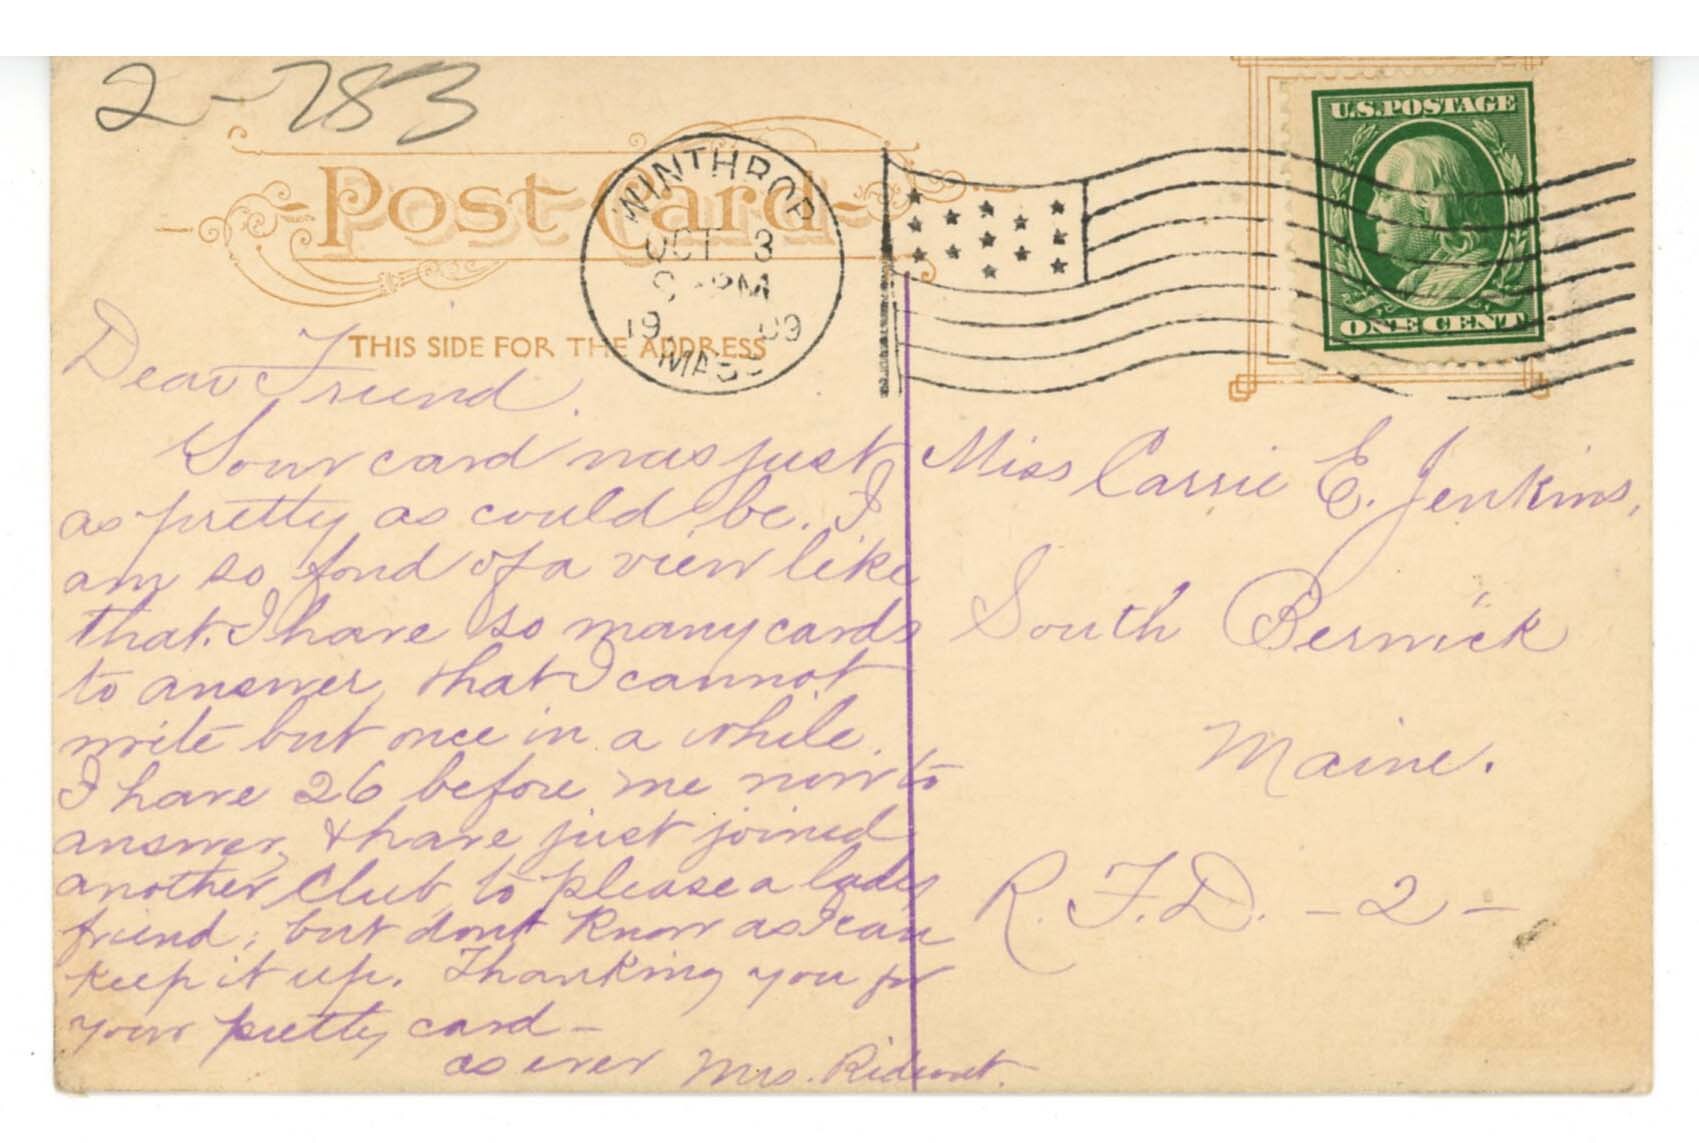 2-783
Post Card
THIS SIDE FOR THE ADDRESS
WINTHROP
OCT 3
PM
1909
MASS
U.S. POSTAGE
ONE CENT
Dear Friend.
Your card was just
as pretty as could be. I
am so fond of a view like
that. I have so many cards
to answer, that I cannot
write but once in a while.
I have 26 before me now to
answer, & have just joined
another Club, to please a lady
friend; but dont know as I can
keep it up. Thanking you for
your pretty card –
as ever Mrs. Rideout.
Miss Carrie E. Jenkins,
South Berwick
Maine.
R. F. D. – 2 –